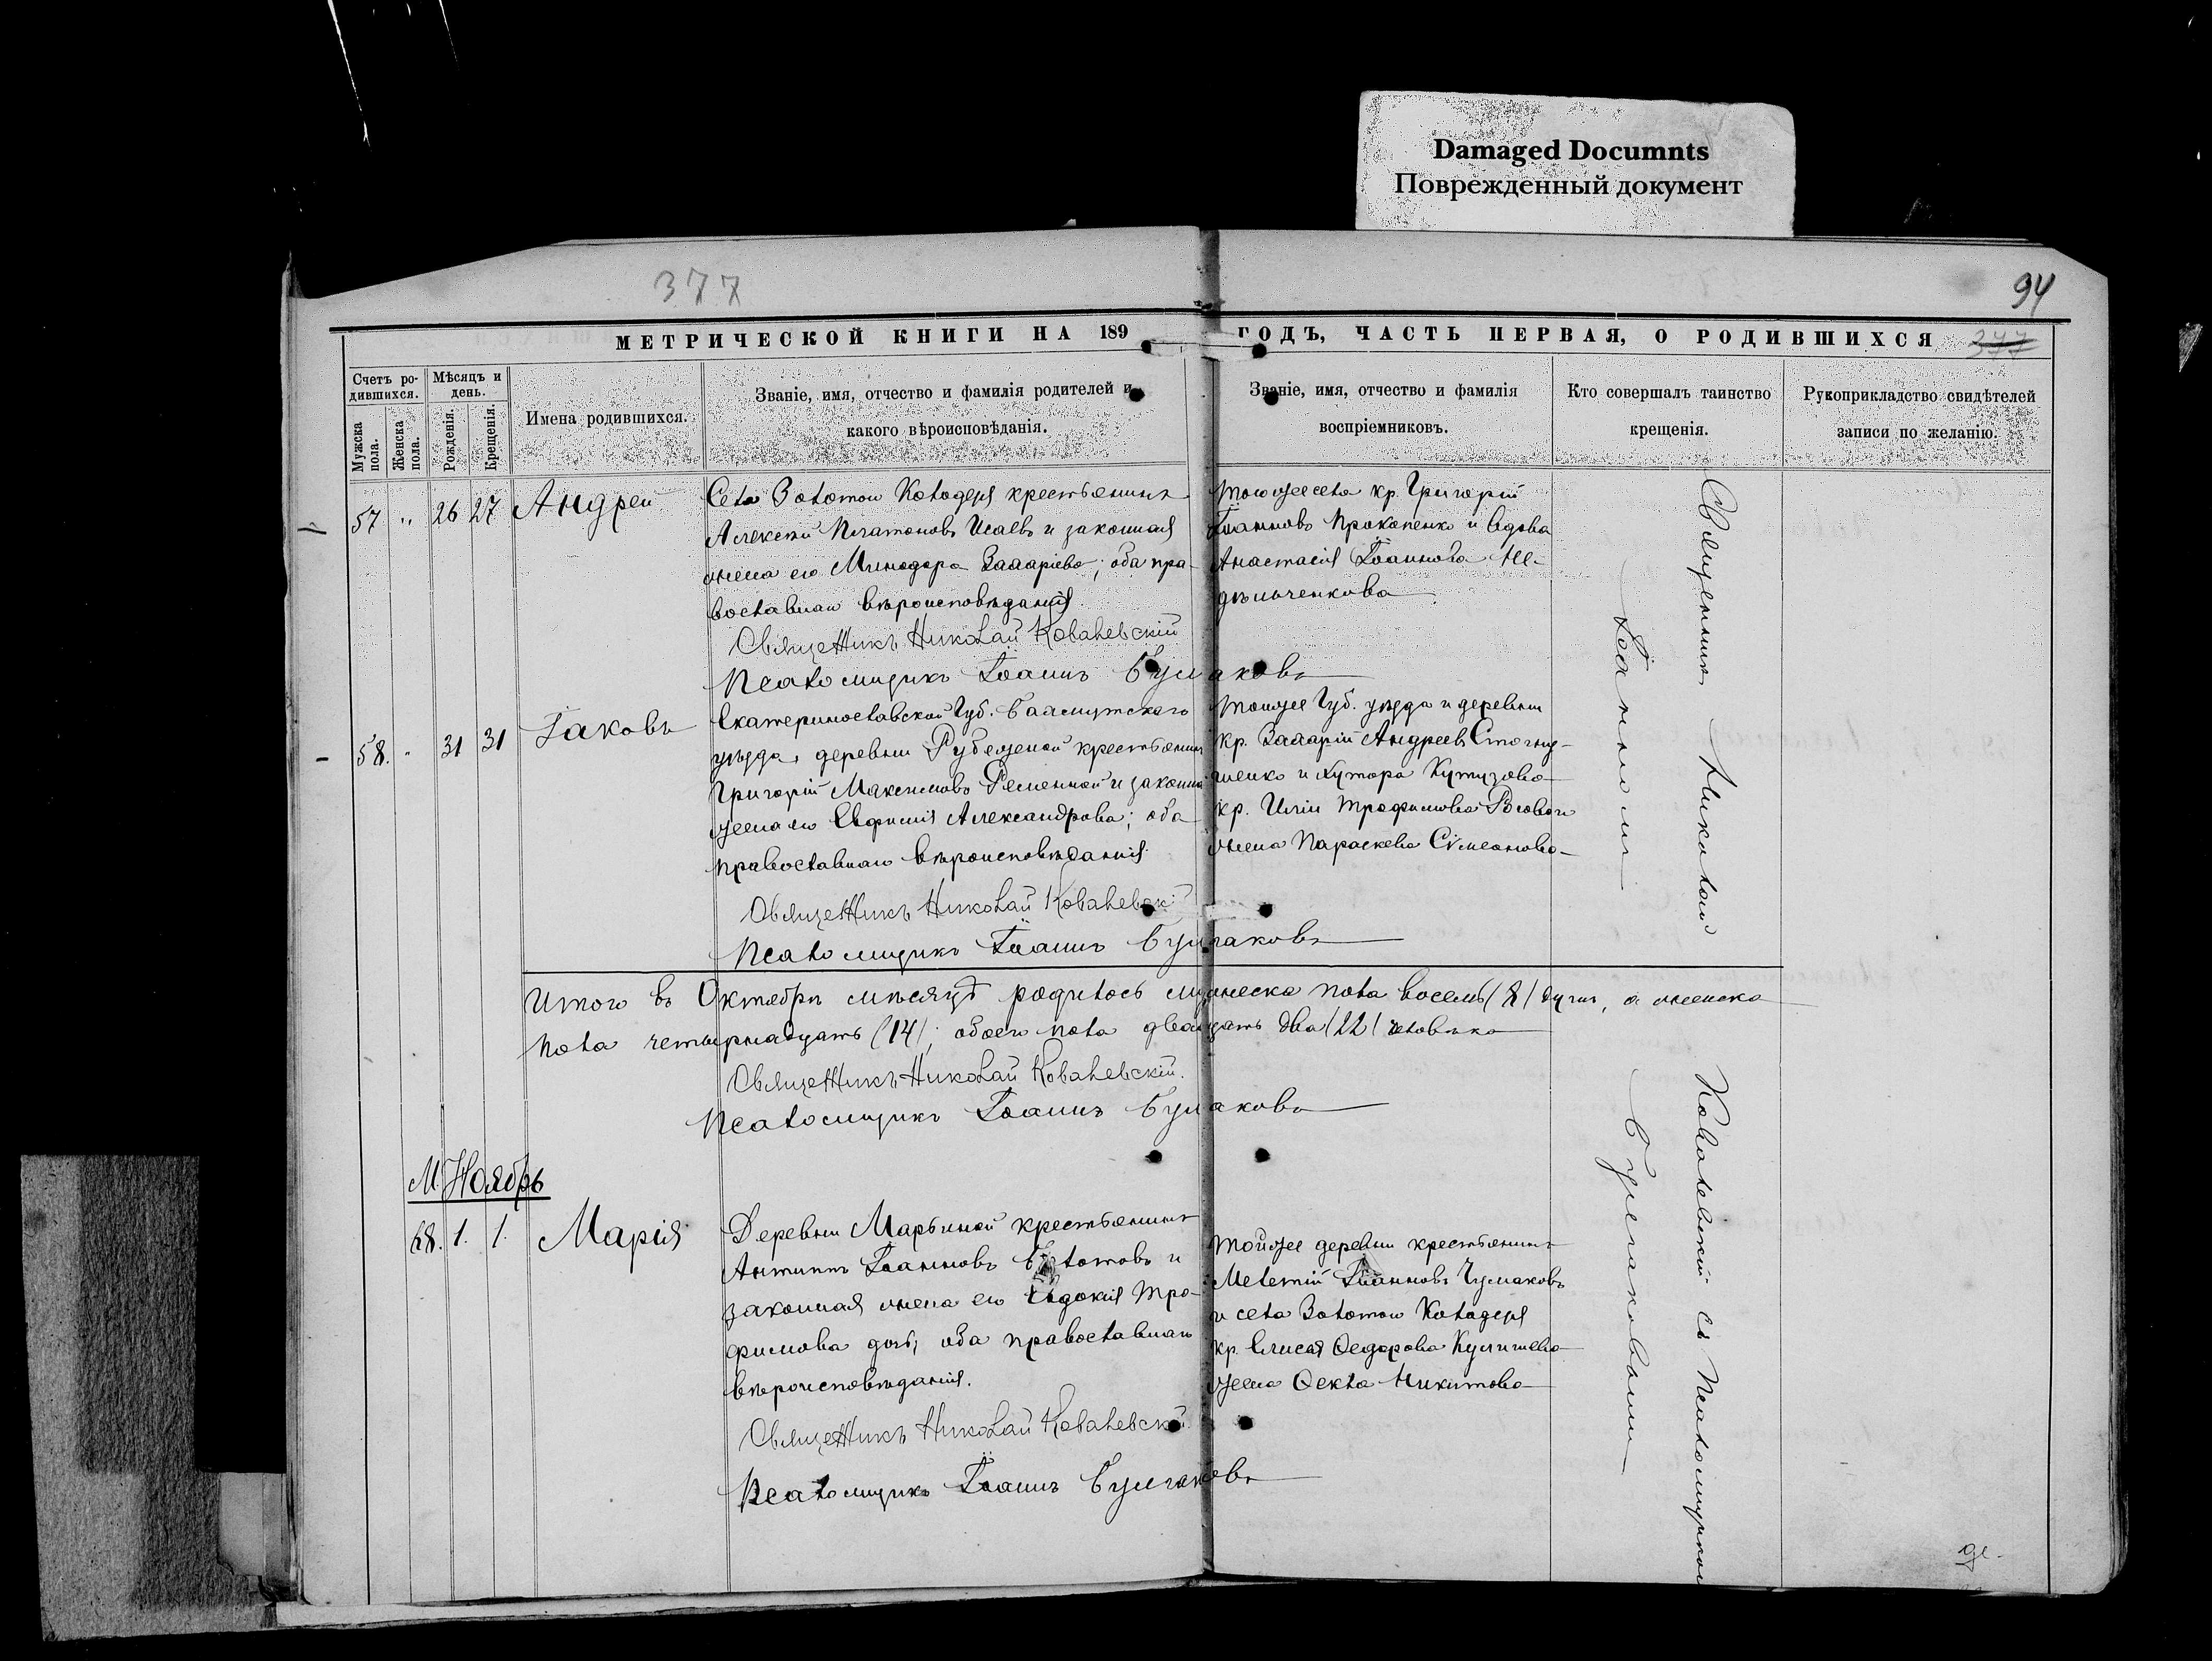 Damaged Documnts
Поврежденный документ
377
94
МЕТРИЧЕСКОЙ КНИГИ НА 189 ГОДЪ, ЧАСТЬ ПЕРВАЯ, О РОДИВШИХСЯ 377
Счетъ ро-
дившихся.
Мужска
пола.
Женска
пола.
Мѣсяцъ и
день.
Рожденія.
Крещенія.
Имена родившихся.
Званіе, имя, отчество и фамилія родителей и
какого вѣроисповѣданія.
Званіе, имя, отчество и фамилія
воспріемниковъ.
Кто совершалъ таинство
крещенія.
Рукоприкладство свидѣтелей
записи по желанію.
57 " 26 27 Андрей
Села Золотого Колодезя крестьянинъ
Алексѣй Платоновъ Исаевъ и законная
жена его Минодора Захаріева; оба пра-
вославнаго вѣроисповѣданія.
Тогоже села кр. Григорій
Іоанновъ Прокопенко и вдова
Анастасія Іоаннова Не-
дѣльченкова
Священникъ Николай Ковалевскій
Псаломщикъ Іоаннъ Булгаковъ
58. " 31 31 Іаковъ
Екатеринославской Губ. Бахмутскаго
уѣзда, деревни Рубежной крестьянинъ
Григорій Максимовъ Ременной и законная
жена его Евфимія Александрова; оба
православнаго вѣроисповѣданія.
Тойже Губ. уѣзда и деревни
кр. Захарій Андреевъ
и хутора Кутузова
кр. Иліи Трофимова
жена Параскева Сѵмеонова
Священникъ Николай Ковалевскі
Псаломщикъ Іоаннъ Булгаковъ
Итого въ Октябрѣ мѣсяцѣ родилось мужеска пола восемь (8) душъ, а женска
пола четырнадцать (14); обоего пола двадцать два (22) человѣка
Священникъ Николай Ковалевскій.
Псаломщикъ Іоаннъ Булгаковъ
М. Ноябрь
68. 1. 1. Марія
Деревни Марьиной крестьянинъ
Антипъ Іоанновъ и
законная жена его Евдокія Тро-
фимова дочь; оба православнаго
вѣроисповѣданія.
Тойже деревни крестьянинъ
Мелетій Іоанновъ Чумаковъ
и села Золотого Колодезя
кр. Елисея Ѳедорова
жена Ѳекла Никитова
Священникъ Николай Ковалевскій
Псаломщикъ Іоаннъ Булгаковъ
Священникъ Николай Ковалевскій съ Псаломщикомъ
Іоанномъ Булгаковымъ